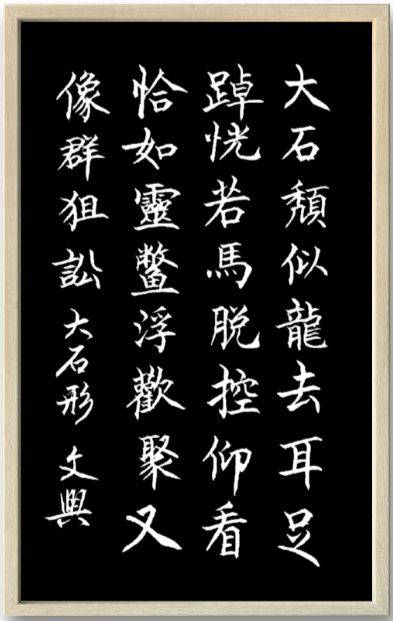 大石頹似龍去耳足
踔恍若馬脱控仰看
恰如靈鱉浮歡聚又
像群狙訟 大石形 文興